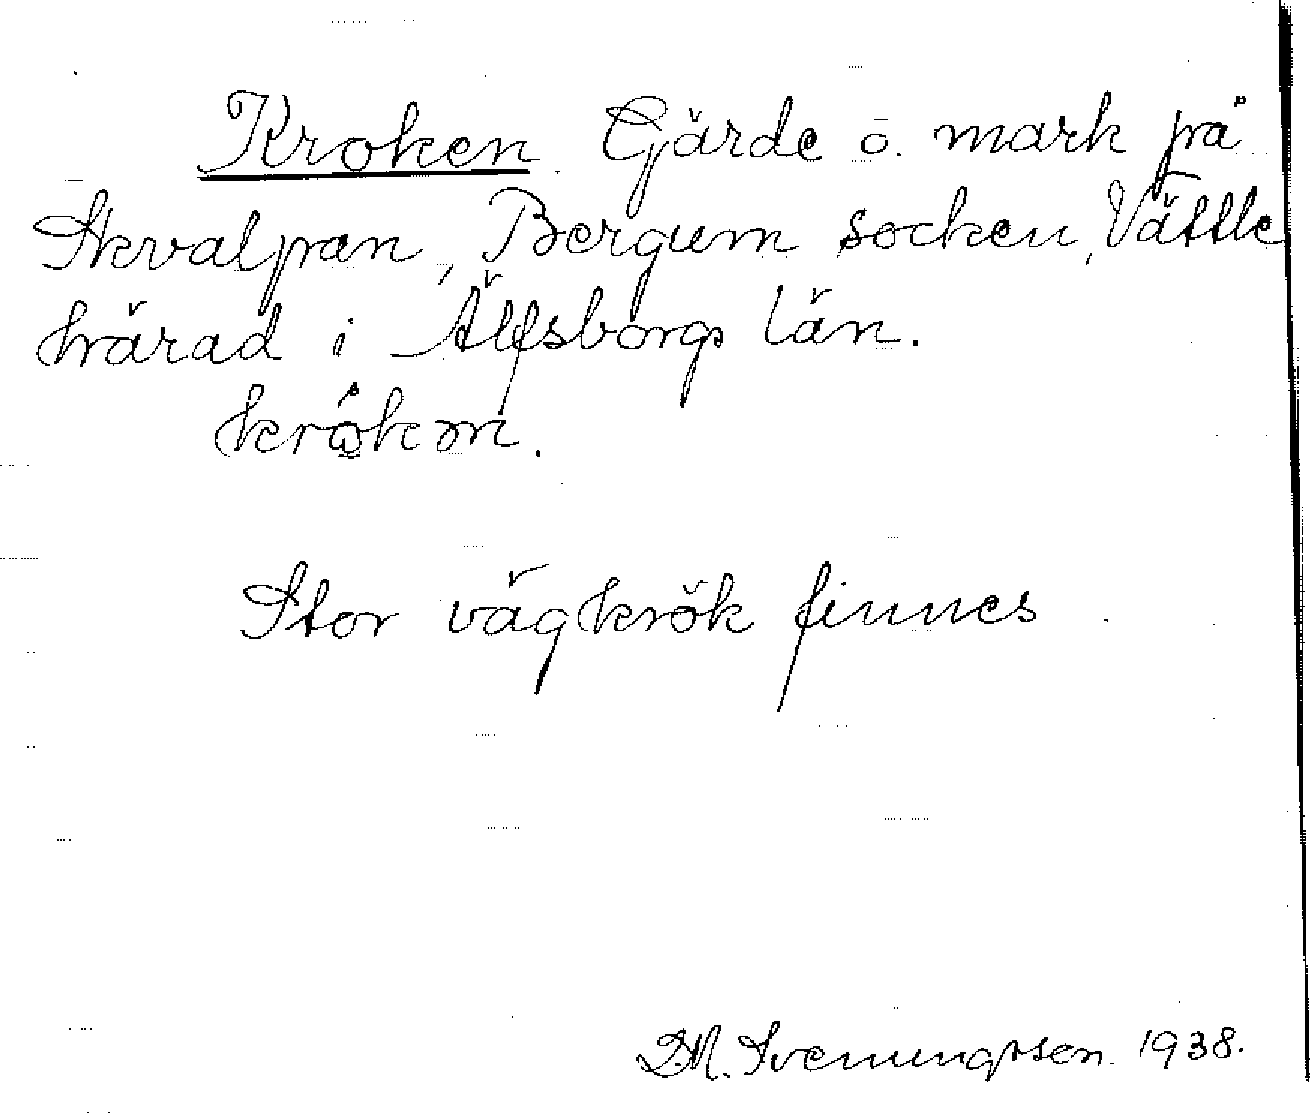 Kroken Gärde o. mark på
Skvalpan, Bergum socken, Vättle
härad i Älfsborgs län.
krökm.
Stor vägkrök finnes
D.M. Sveningsson. 1938.